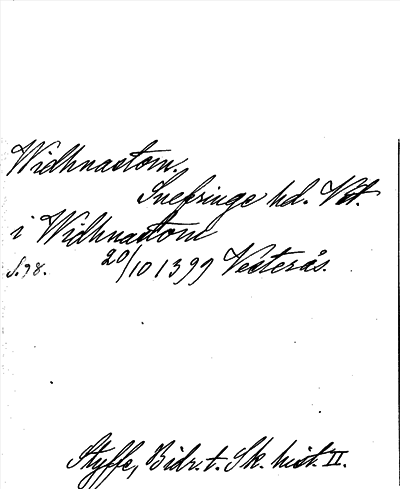 Widhnastom.
Snefringe hd. Vst.
i Widhnastom
S. 98. 20/10 1399 Vesterås.
Styffe, Bidr. t. Sk. hist. II.